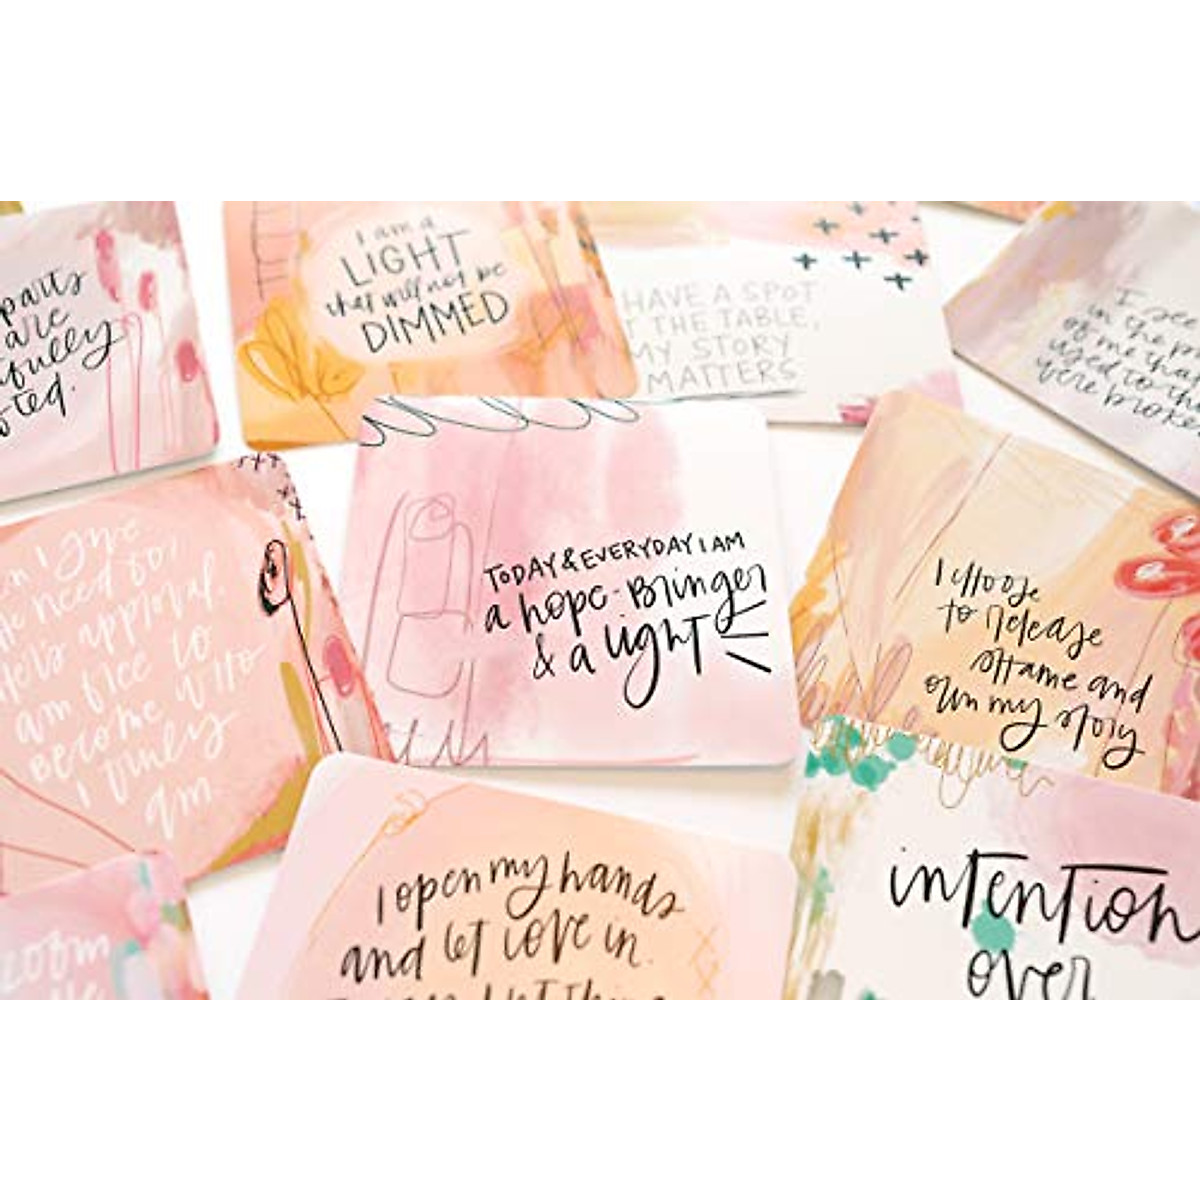 parts
are
I am a
LIGHT
that will not be
DIMMED
HAVE A SPOT
THE TABLE,
MY STORY
MATTERS
I see
in the
of me that
used to
were broken
I give
need to
approval.
am free to
become who
I truly
am
TODAY & EVERYDAY I AM
a hope-Bringer
& a light
I choose
to release
shame and
own my story
I open my hands
and let love in.
intention
over